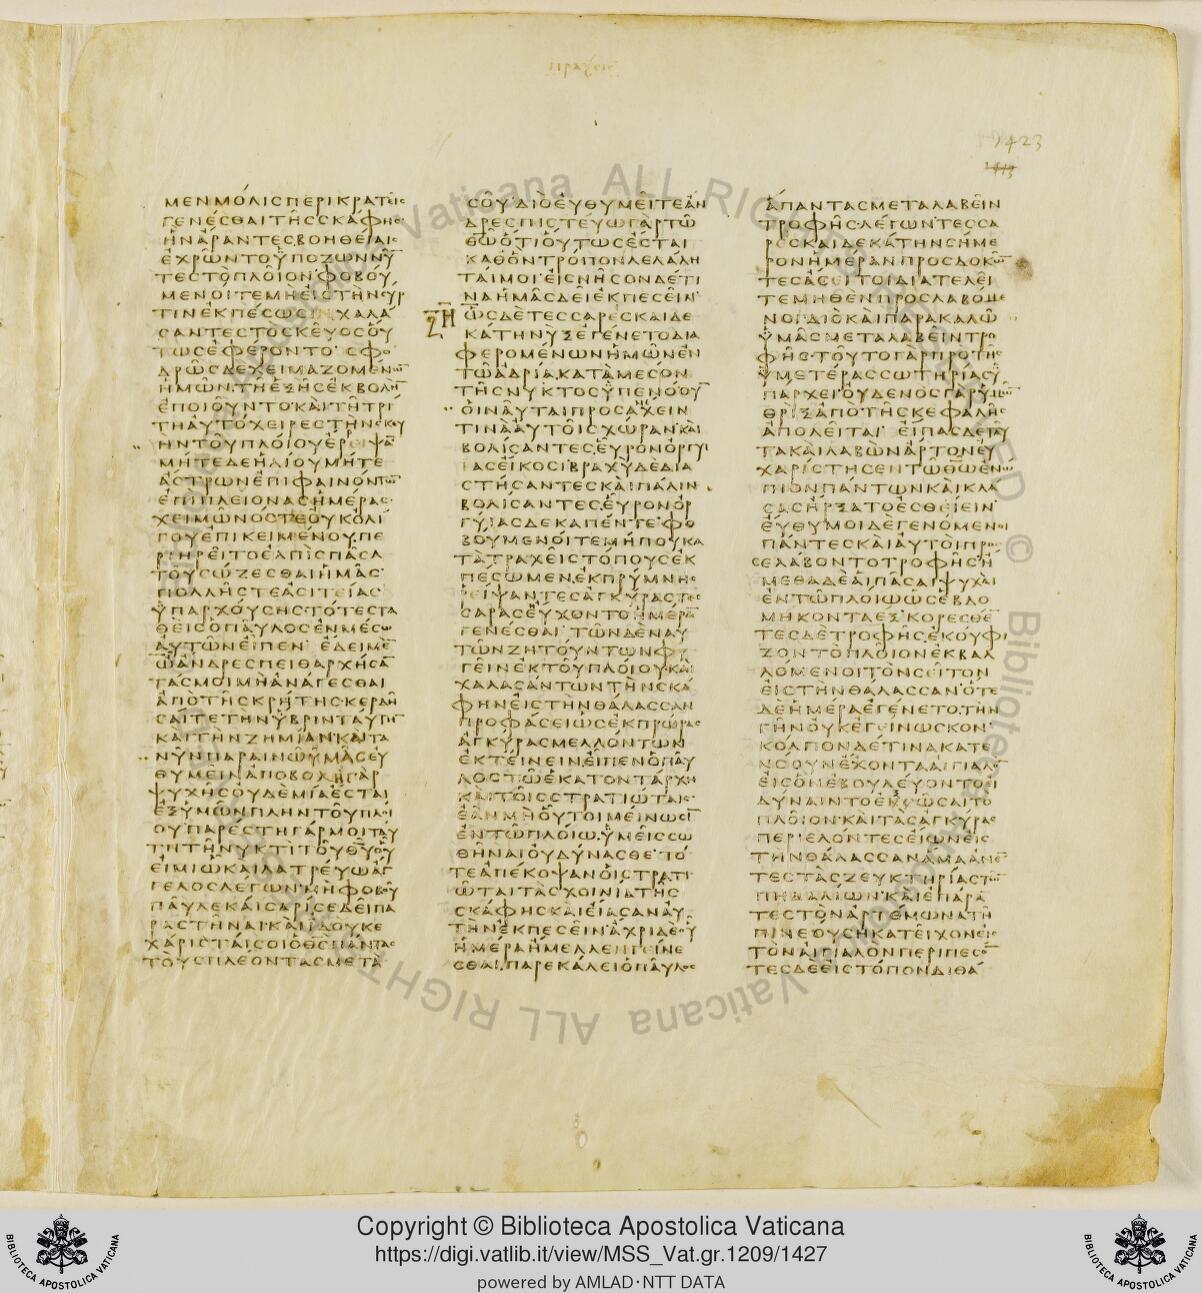 Πραξεις
1423
ΜΕΝΜΟΛΙϹΠΕΡΙΚΡΑΤΕΙϹ
ΓΕΝΕϹΘΑΙΤΗϹϹΚΑΦΗϹ
ΗΝΑΡΑΝΤΕϹΒΟΗΘΕΙΑΙϹ
ΕΧΡΩΝΤΟΥΠΟΖΩΝΝΥ̅
ΤΕϹΤΟΠΛΟΙΟΝΦΟΒΟΥ
ΜΕΝΟΙΤΕΜΗΕΙϹΤΗΝϹΥΡ
ΤΙΝΕΚΠΕϹΩϹΙΝΧΑΛΑ
ϹΑΝΤΕϹΤΟϹΚΕΥΟϹΟΥ
ΤΩϹΕΦΕΡΟΝΤΟϹΦΟ
ΔΡΩϹΔΕΧΕΙΜΑΖΟΜΕΝΩ̅
ΗΜΩΝΤΗΕΞΗϹΕΚΒΟΛΗ̅
ΕΠΟΙΟΥΝΤΟΚΑΙΤΗΤΡΙ
ΤΗΑΥΤΟΧΕΙΡΕϹΤΗΝϹΚΕΥ
ΗΝΤΟΥΠΛΟΙΟΥΕΡΕΙΨΑ̅
ΜΗΤΕΔΕΗΛΙΟΥΜΗΤΕ
ΑϹΤΡΩΝΕΠΙΦΑΙΝΟΝΤΩ̅
ΕΠΙΠΛΕΙΟΝΑϹΗΜΕΡΑϹ
ΧΕΙΜΩΝΟϹΤΕΟΥΚΟΛΙ
ΓΟΥΕΠΙΚΕΙΜΕΝΟΥΠΕ
ΡΙΗΡΕΙΤΟΕΛΠΙϹΠΑϹΑ
ΤΟΥϹΩΖΕϹΘΑΙΗΜΑϹ
ΠΟΛΛΗϹΤΕΑϹΙΤΕΙΑϹ
ΥΠΑΡΧΟΥϹΗϹΤΟΤΕϹΤΑ
ΘΕΙϹΟΠΑΥΛΟϹΕΝΜΕϹΩ
ΑΥΤΩΝΕΙΠΕΝΕΔΕΙΜΕ̅
ΩΑΝΔΡΕϹΠΕΙΘΑΡΧΗϹΑ̅
ΤΑϹΜΟΙΜΗΑΝΑΓΕϹΘΑΙ
ΑΠΟΤΗϹΚΡΗΤΗϹΚΕΡΔΗ
ϹΑΙΤΕΤΗΝΥΒΡΙΝΤΑΥΤΗ̅
ΚΑΙΤΗΝΖΗΜΙΑΝΚΑΙΤΑ
ΝΥΝΠΑΡΑΙΝΩΥΜΑϹΕΥ
ΘΥΜΕΙΝΑΠΟΒΟΛΗΓΑΡ
ΨΥΧΗϹΟΥΔΕΜΙΑΕϹΤΑΙ
ΕΞΥΜΩΝΠΛΗΝΤΟΥΠΛΟΙ
ΟΥΠΑΡΕϹΤΗΓΑΡΜΟΙΤΑΥ
ΤΗΤΗΝΥΚΤΙΤΟΥΘ̅Υ̅ΟΥ
ΕΙΜΙΩΚΑΙΛΑΤΡΕΥΩΑΓ
ΓΕΛΟϹΛΕΓΩΝΜΗΦΟΒΟΥ
ΠΑΥΛΕΚΑΙϹΑΡΙϹΕΔΕΙΠΑ
ΡΑϹΤΗΝΑΙΚΑΙΙΔΟΥΚΕ
ΧΑΡΙϹΤΑΙϹΟΙΟΘ̅Ϲ̅ΠΑΝΤΑϹ
ΤΟΥϹΠΛΕΟΝΤΑϹΜΕΤΑ
ϹΟΥΔΙΟΕΥΘΥΜΕΙΤΕΑΝ
ΔΡΕϹΠΙϹΤΕΥΩΓΑΡΤΩ
Θ̅Ω̅ΟΤΙΟΥΤΩϹΕϹΤΑΙ
ΚΑΘΟΝΤΡΟΠΟΝΛΕΛΑΛΗ
ΤΑΙΜΟΙΕΙϹΝΗϹΟΝΔΕΤΙ
ΝΑΗΜΑϹΔΕΙΕΚΠΕϹΕΙΝ
ΩϹΔΕΤΕϹϹΑΡΕϹΚΑΙΔΕ
ΚΑΤΗΝΥΞΕΓΕΝΕΤΟΔΙΑ
ΦΕΡΟΜΕΝΩΝΗΜΩΝΕΝ
ΤΩΑΔΡΙΑΚΑΤΑΜΕϹΟΝ
ΤΗϹΝΥΚΤΟϹΥΠΕΝΟΟΥ̅
ΟΙΝΑΥΤΑΙΠΡΟϹΑΧΕΙΝ
ΤΙΝΑΑΥΤΟΙϹΧΩΡΑΝΚΑΙ
ΒΟΛΙϹΑΝΤΕϹΕΥΡΟΝΟΡΓΥΙ
ΑϹΕΙΚΟϹΙΒΡΑΧΥΔΕΔΙΑ
ϹΤΗϹΑΝΤΕϹΚΑΙΠΑΛΙΝ
ΒΟΛΙϹΑΝΤΕϹΕΥΡΟΝΟΡ
ΓΥΙΑϹΔΕΚΑΠΕΝΤΕΦΟ
ΒΟΥΜΕΝΟΙΤΕΜΗΠΟΥΚΑ
ΤΑΤΡΑΧΕΙϹΤΟΠΟΥϹΕΚ
ΠΕϹΩΜΕΝΕΚΠΡΥΜΝΗϹ
ΡΕΙΨΑΝΤΕϹΑΓΚΥΡΑϹΤΕϹ
ϹΑΡΑϹΕΥΧΟΝΤΟΗΜΕΡΑ̅
ΓΕΝΕϹΘΑΙΤΩΝΔΕΝΑΥ
ΤΩΝΖΗΤΟΥΝΤΩΝΦΥ
ΓΕΙΝΕΚΤΟΥΠΛΟΙΟΥΚΑΙ
ΧΑΛΑϹΑΝΤΩΝΤΗΝϹΚΑ
ΦΗΝΕΙϹΤΗΝΘΑΛΑϹϹΑΝ
ΠΡΟΦΑϹΕΙΩϹΕΚΠΡΩΡΑϹ
ΑΓΚΥΡΑϹΜΕΛΛΟΝΤΩΝ
ΕΚΤΕΙΝΕΙΝΕΙΠΕΝΟΠΑΥ
ΛΟϹΤΩΕΚΑΤΟΝΤΑΡΧΗ
ΚΑΙΤΟΙϹϹΤΡΑΤΙΩΤΑΙϹ
ΕΑΝΜΗΟΥΤΟΙΜΕΙΝΩϹΙ̅
ΕΝΤΩΠΛΟΙΩΥΜΕΙϹϹΩ
ΘΗΝΑΙΟΥΔΥΝΑϹΘΕΤΟ
ΤΕΑΠΕΚΟΨΑΝΟΙϹΤΡΑΤΙ
ΩΤΑΙΤΑϹΧΟΙΝΙΑΤΗϹ
ϹΚΑΦΗϹΚΑΙΕΙΑϹΑΝΑΥ
ΤΗΝΕΚΠΕϹΕΙΝΑΧΡΙΔΕΟΥ
ΗΜΕΡΑΗΜΕΛΛΕΝΓΕΙΝΕ
ϹΘΑΙΠΑΡΕΚΑΛΕΙΟΠΑΥΛΟϹ
ΑΠΑΝΤΑϹΜΕΤΑΛΑΒΕΙΝ
ΤΡΟΦΗϹΛΕΓΩΝΤΕϹϹΑ
ΡΕϹΚΑΙΔΕΚΑΤΗΝϹΗΜΕ
ΡΟΝΗΜΕΡΑΝΠΡΟϹΔΟΚΩ̅
ΤΕϹΑϹΙΤΟΙΔΙΑΤΕΛΕΙ
ΤΕΜΗΘΕΝΠΡΟϹΛΑΒΟΜΕ
ΝΟΙΔΙΟΚΑΙΠΑΡΑΚΑΛΩ
ΥΜΑϹΜΕΤΑΛΑΒΕΙΝΤΡΟ
ΦΗϹΤΟΥΤΟΓΑΡΠΡΟΤΗϹ
ΥΜΕΤΕΡΑϹϹΩΤΗΡΙΑϹΥ
ΠΑΡΧΕΙΟΥΔΕΝΟϹΓΑΡΥΜΩ̅
ΘΡΙΞΑΠΟΤΗϹΚΕΦΑΛΗϹ
ΑΠΟΛΕΙΤΑΙΕΙΠΑϹΔΕΤΑΥ
ΤΑΚΑΙΛΑΒΩΝΑΡΤΟΝΕΥ
ΧΑΡΙϹΤΗϹΕΝΤΩΘ̅Ω̅ΕΝΩ
ΠΙΟΝΠΑΝΤΩΝΚΑΙΚΛΑ
ϹΑϹΗΡΞΑΤΟΕϹΘΙΕΙΝ
ΕΥΘΥΜΟΙΔΕΓΕΝΟΜΕΝΟΙ
ΠΑΝΤΕϹΚΑΙΑΥΤΟΙΠΡΟϹ
ΕΛΑΒΟΝΤΟΤΡΟΦΗϹΗ
ΜΕΘΑΔΕΑΙΠΑϹΑΙΨΥΧΑΙ
ΕΝΤΩΠΛΟΙΩΩϹΕΒΔΟ
ΜΗΚΟΝΤΑΕΞΚΟΡΕϹΘΕ̅
ΤΕϹΔΕΤΡΟΦΗϹΕΚΟΥΦΙ
ΖΟΝΤΟΠΛΟΙΟΝΕΚΒΑΛ
ΛΟΜΕΝΟΙΤΟΝϹΕΙΤΟΝ
ΕΙϹΤΗΝΘΑΛΑϹϹΑΝΟΤΕ
ΔΕΗΜΕΡΑΕΓΕΝΕΤΟΤΗΝ
ΓΗΝΟΥΚΕΓΕΙΝΩϹΚΟΝ
ΚΟΛΠΟΝΔΕΤΙΝΑΚΑΤΕ
ΝΟΟΥΝΕΧΟΝΤΑΑΙΓΙΑΛΟ̅
ΕΙϹΟΝΕΒΟΥΛΕΥΟΝΤΟΕΙ
ΔΥΝΑΙΝΤΟΕΚϹΩϹΑΙΤΟ
ΠΛΟΙΟΝΚΑΙΤΑϹΑΓΚΥΡΑϹ
ΠΕΡΙΕΛΟΝΤΕϹΕΙΩΝΕΙϹ
ΤΗΝΘΑΛΑϹϹΑΝΑΜΑΑΝΕ̅
ΤΕϹΤΑϹΖΕΥΚΤΗΡΙΑϹΤΩ̅
ΠΗΔΑΛΙΩΝΚΑΙΕΠΑΡΑ̅
ΤΕϹΤΟΝΑΡΤΕΜΩΝΑΤΗ
ΠΝΕΟΥϹΗΚΑΤΕΙΧΟΝΕΙϹ
ΤΟΝΑΙΓΙΑΛΟΝΠΕΡΙΠΕϹΟ̅
ΤΕϹΔΕΕΙϹΤΟΠΟΝΔΙΘΑ
Copyright © Biblioteca Apostolica Vaticana
https://digi.vatlib.it/view/MSS_Vat.gr.1209/1427
powered by AMLAD·NTT DATA